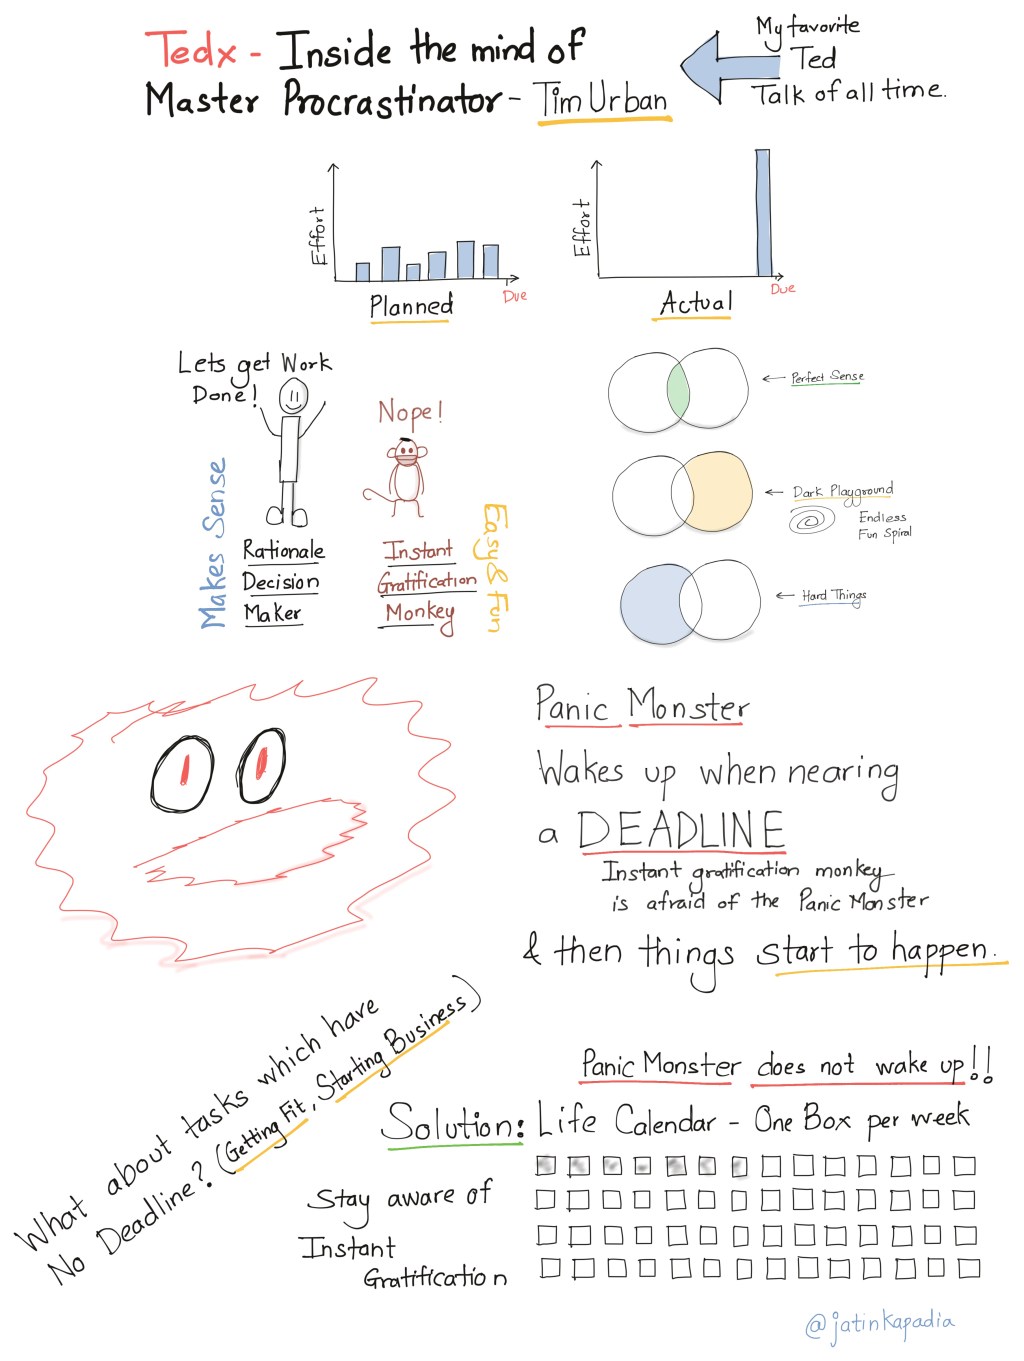 Tedx - Inside the mind of
Master Procrastinator - Tim Urban
My favorite
Ted
Talk of all time.
Effort
Planned
Due
Effort
Actual
Due
Lets get Work
Done!
Nope!
Makes Sense
Rationale
Decision
Maker
Instant
Gratification
Monkey
Easy & Fun
Perfect Sense
Dark Playground
Endless
Fun Spiral
Hard Things
Panic Monster
Wakes up when nearing
a DEADLINE
Instant gratification monkey
is afraid of the Panic Monster
& then things start to happen.
What about tasks which have
No Deadline? (Getting Fit, Starting Business)
Panic Monster does not wake up!!
Solution: Life Calendar - One Box per week
Stay aware of
Instant
Gratification
@jatinkapadia